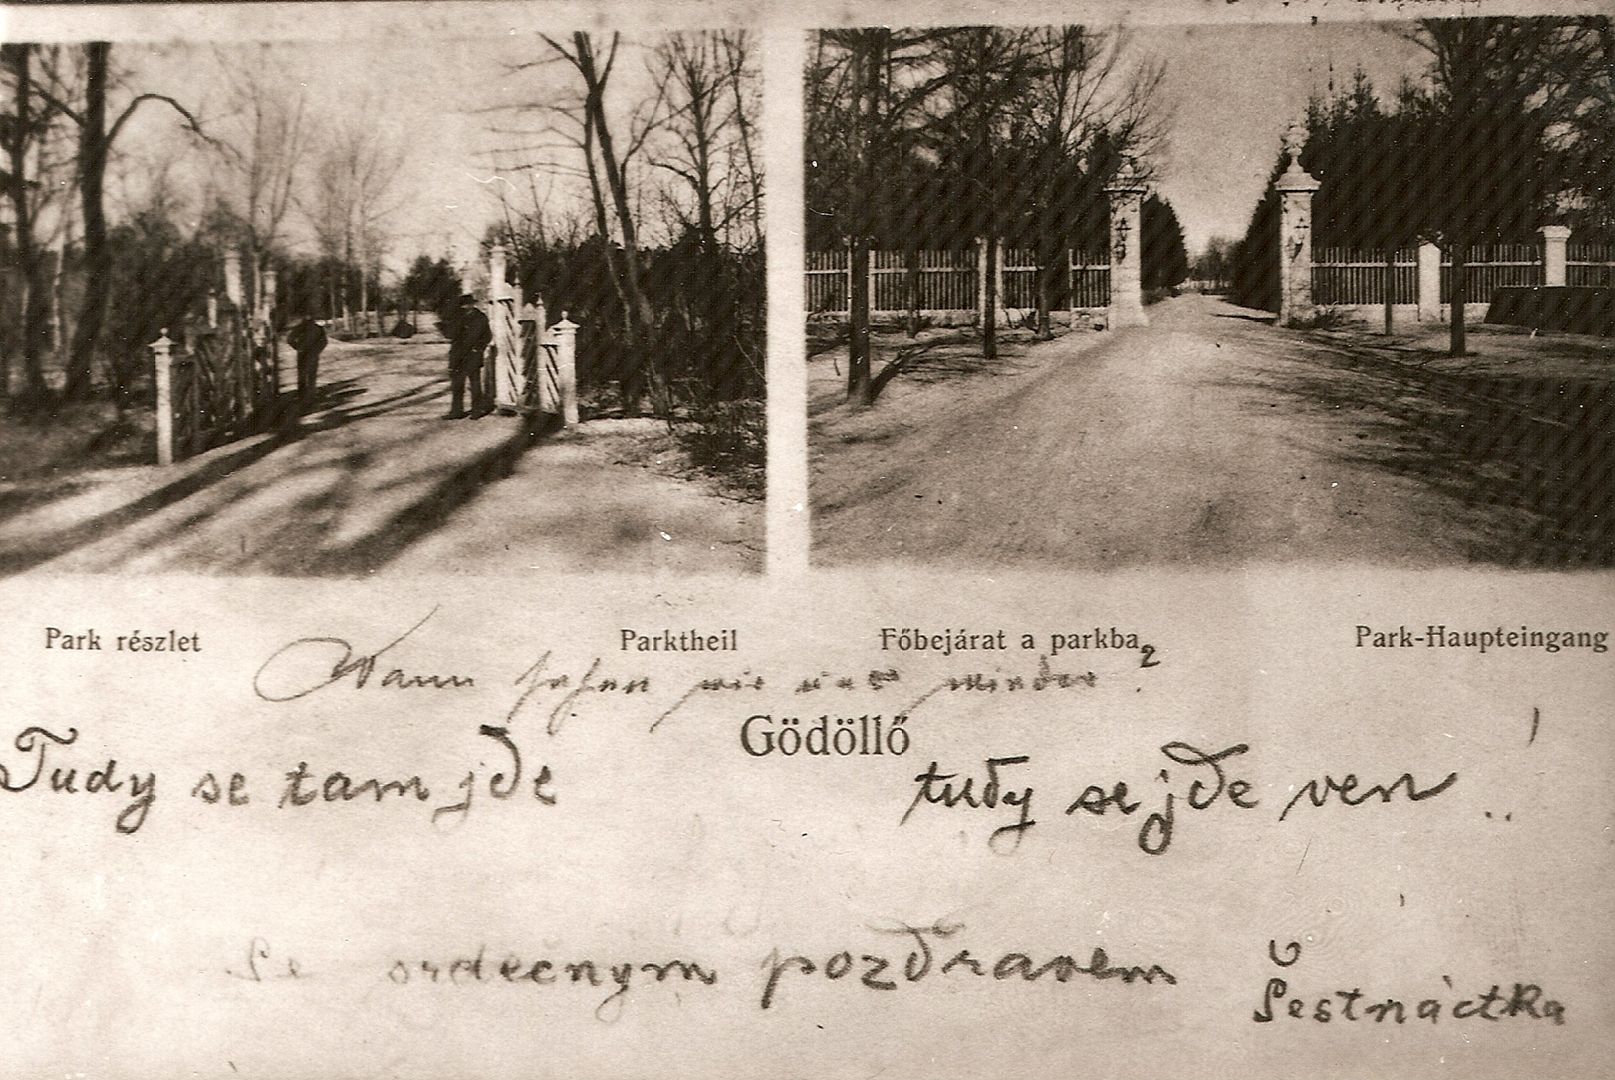 Park részlet Parktheil Főbejárat a parkba Park-Haupteingang
Wann sehen wir uns wieder?
Gödöllő
Tudy se tam jde tudy se jde ven..!
Se srdečným pozdravem
Šestnáctka